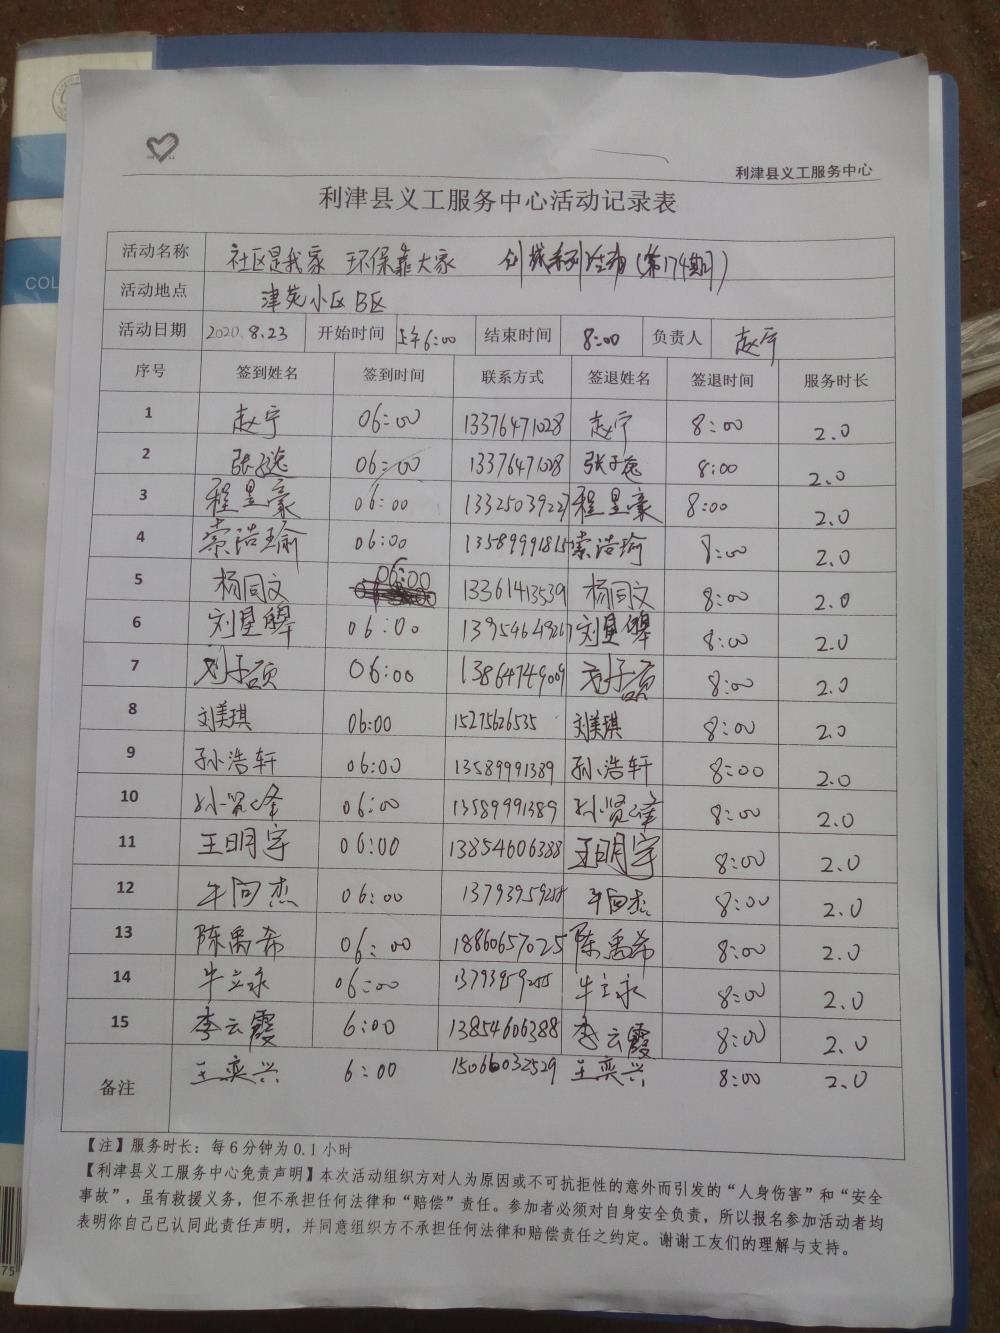 COL
利津县义工服务中心
利津县义工服务中心活动记录表
活动名称 社区是我家 环保靠大家 创城系列活动(第174期)
活动地点 津苑小区B区
活动日期 2020.8.23 开始时间 上午6:00 结束时间 8:00 负责人 赵宁
序号 签到姓名 签到时间 联系方式 签退姓名 签退时间 服务时长
1 赵宁 06:00 13376471028 赵宁 8:00 2.0
2 张子逸 06:00 13376471028 张子逸 8:00 2.0
3 程昱豪 06:00 13325039227 程昱豪 8:00 2.0
4 索浩瑜 06:00 13589991815 索浩瑜 8:00 2.0
5 杨同文 06:00 13361413539 杨同文 8:00 2.0
6 刘星 06:00 8:00 2.0
7 刘子硕 06:00 13864749009 刘子硕 8:00 2.0
8 刘美琪 06:00 15275626535 刘美琪 8:00 2.0
9 孙浩轩 06:00 13589991389 孙浩轩 8:00 2.0
10 孙贤峰 06:00 13589991389 孙贤峰 8:00 2.0
11 王明宇 06:00 13854606388 王明宇 8:00 2.0
12 牛向杰 06:00 牛向杰 8:00 2.0
13 陈禹希 06:00 18860657025 陈禹希 8:00 2.0
14 牛立永 06:00 牛立永 8:00 2.0
15 李云霞 6:00 13854606388 李云霞 8:00 2.0
备注 王奕兴 6:00 15066032529 王奕兴 8:00 2.0
【注】服务时长：每6分钟为0.1小时
【利津县义工服务中心免责声明】本次活动组织方对人为原因或不可抗拒性的意外而引发的“人身伤害”和“安全
事故”，虽有救援义务，但不承担任何法律和“赔偿”责任。参加者必须对自身安全负责，所以报名参加活动者均
表明你自己已认同此责任声明，并同意组织方不承担任何法律和赔偿责任之约定。谢谢工友们的理解与支持。